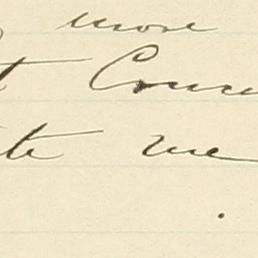 more
t Coun
te me
.